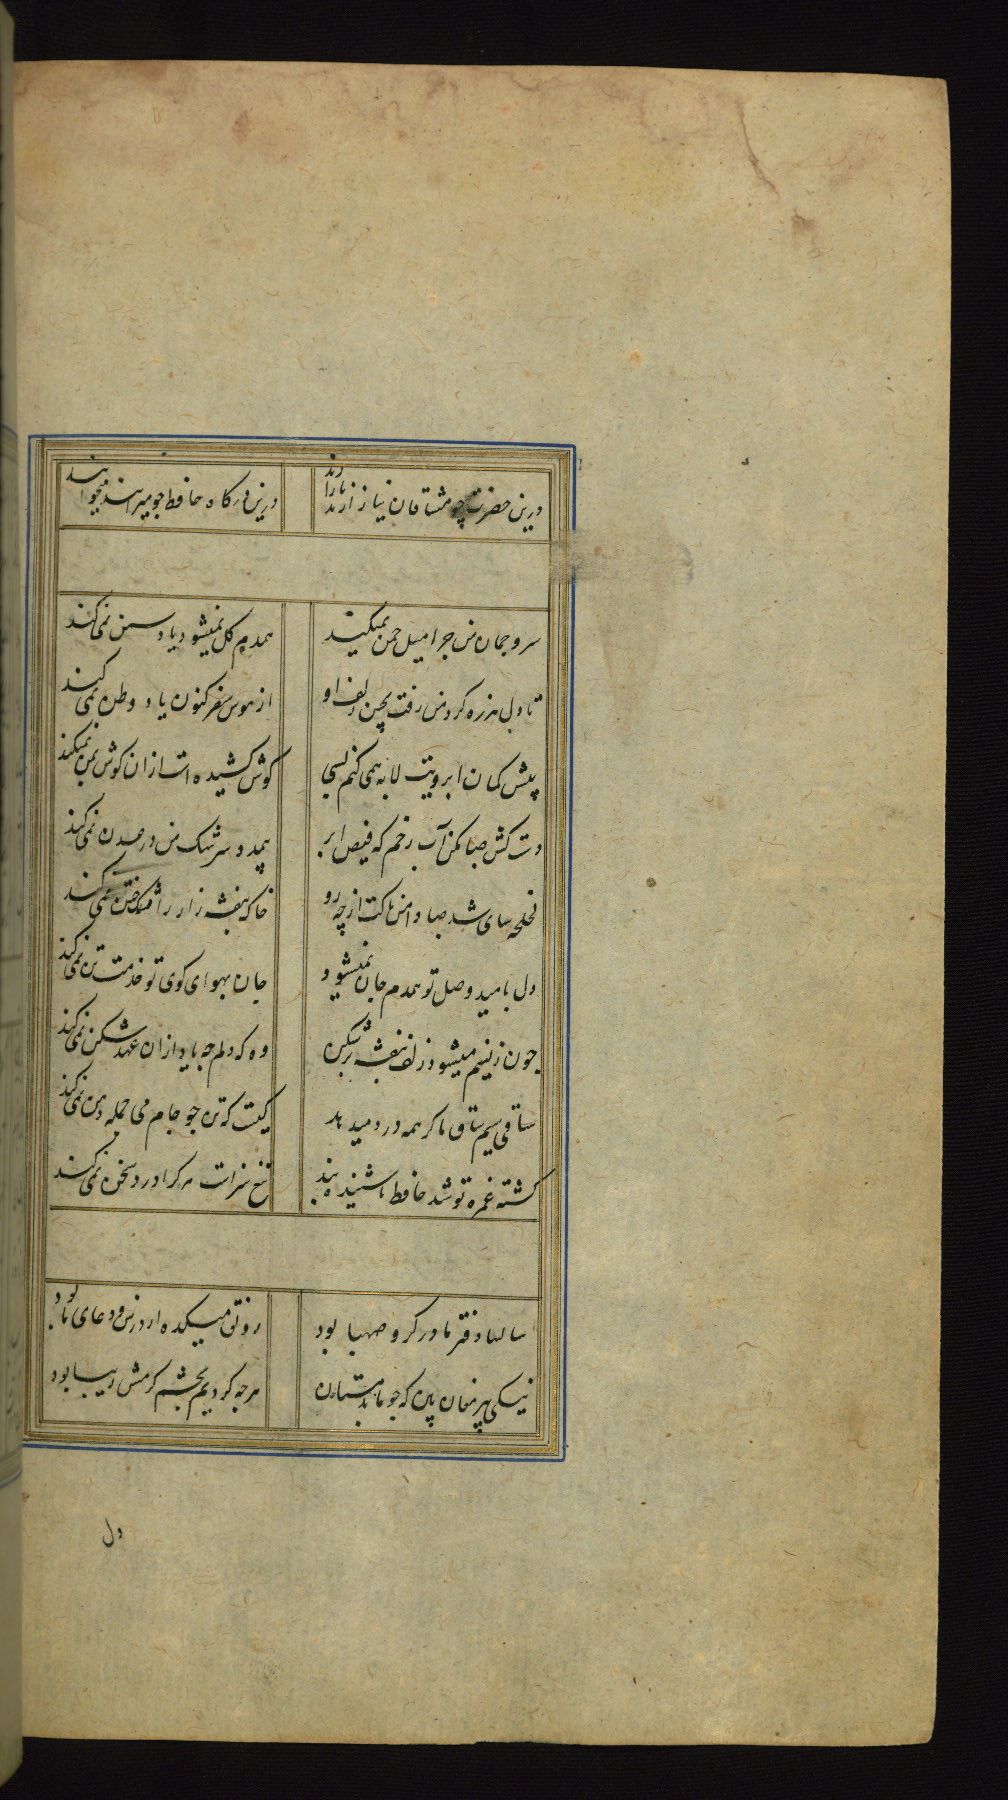 درین حضرت چو مشتاقان نیاز آرند ناز آرند درین درگاه حافظ چو میرانند میخوانند
سرو چمان من چرا میل چمن نمیکند همدم گل نمیشود یاد سمن نمی کند
تا دل هرزه گرد من رفت بچین زلف او از هوس سفر کنون یاد وطن نمی کند
پیش کمان ابرویت لابه همی کنم بسی گوش کشیده است از آن گوش بمن نمیکند
دست کش جفا مکن آب رخم که فیض ابر بیمدد سرشک من در عدن نمی کند
لخلخه سای شد صبا دامن پاکت از چه رو خاک بنفشه زار را مشک ختن نمی کند
دل بامید وصل تو همدم جان نمیشود جان بهوای کوی تو خدمت تن نمی کند
چون ز نسیم میشود زلف بنفشه پرشکن وه که دلم چه یاد از آن عهد شکن نمی کند
ساقی سیم ساق ما گر همه درد میدهد کیست که تن چو جام می جمله دهن نمی کند
کشته غمزه تو شد حافظ ناشنیده پند تیغ سزاست هر کرا درد سخن نمی کند
سالها دفتر ما در گرو صهبا بود رونق میکده از درس و دعای ما بود
نیکی پیر مغان بین که چو ما بد مستان هر چه کردیم بچشم کرمش زیبا بود
دل